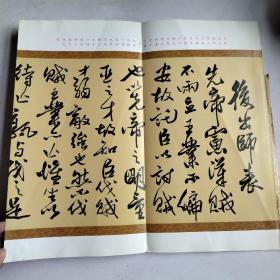 後出師表
先帝慮漢賊
不兩立王業不偏
安故託臣以討賊
也以先帝之明量
臣之才故知臣伐賊
才弱敵強也然不伐
賊王業亦亡惟坐以
待亡孰與伐之是